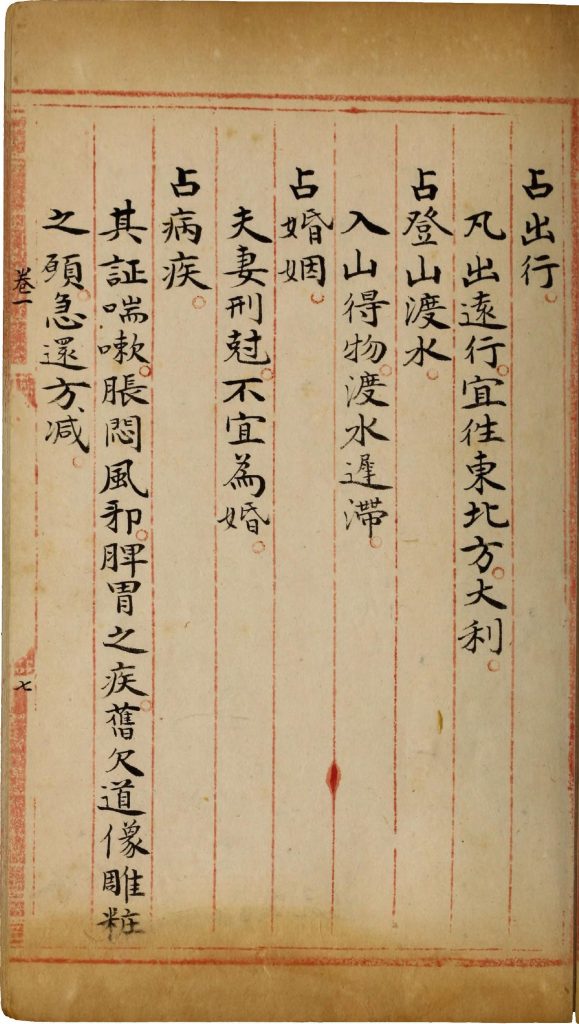 占出行。
凡出遠行。宜往東北方。大利。
占登山渡水。
入山得物。渡水遲滯。
占婚姻。
夫妻刑尅。不宜為婚。
占病疾。
其証喘嗽。脹悶風邪。脾胃之疾。舊欠道像雕粧
之願。急還方减。
卷一
七